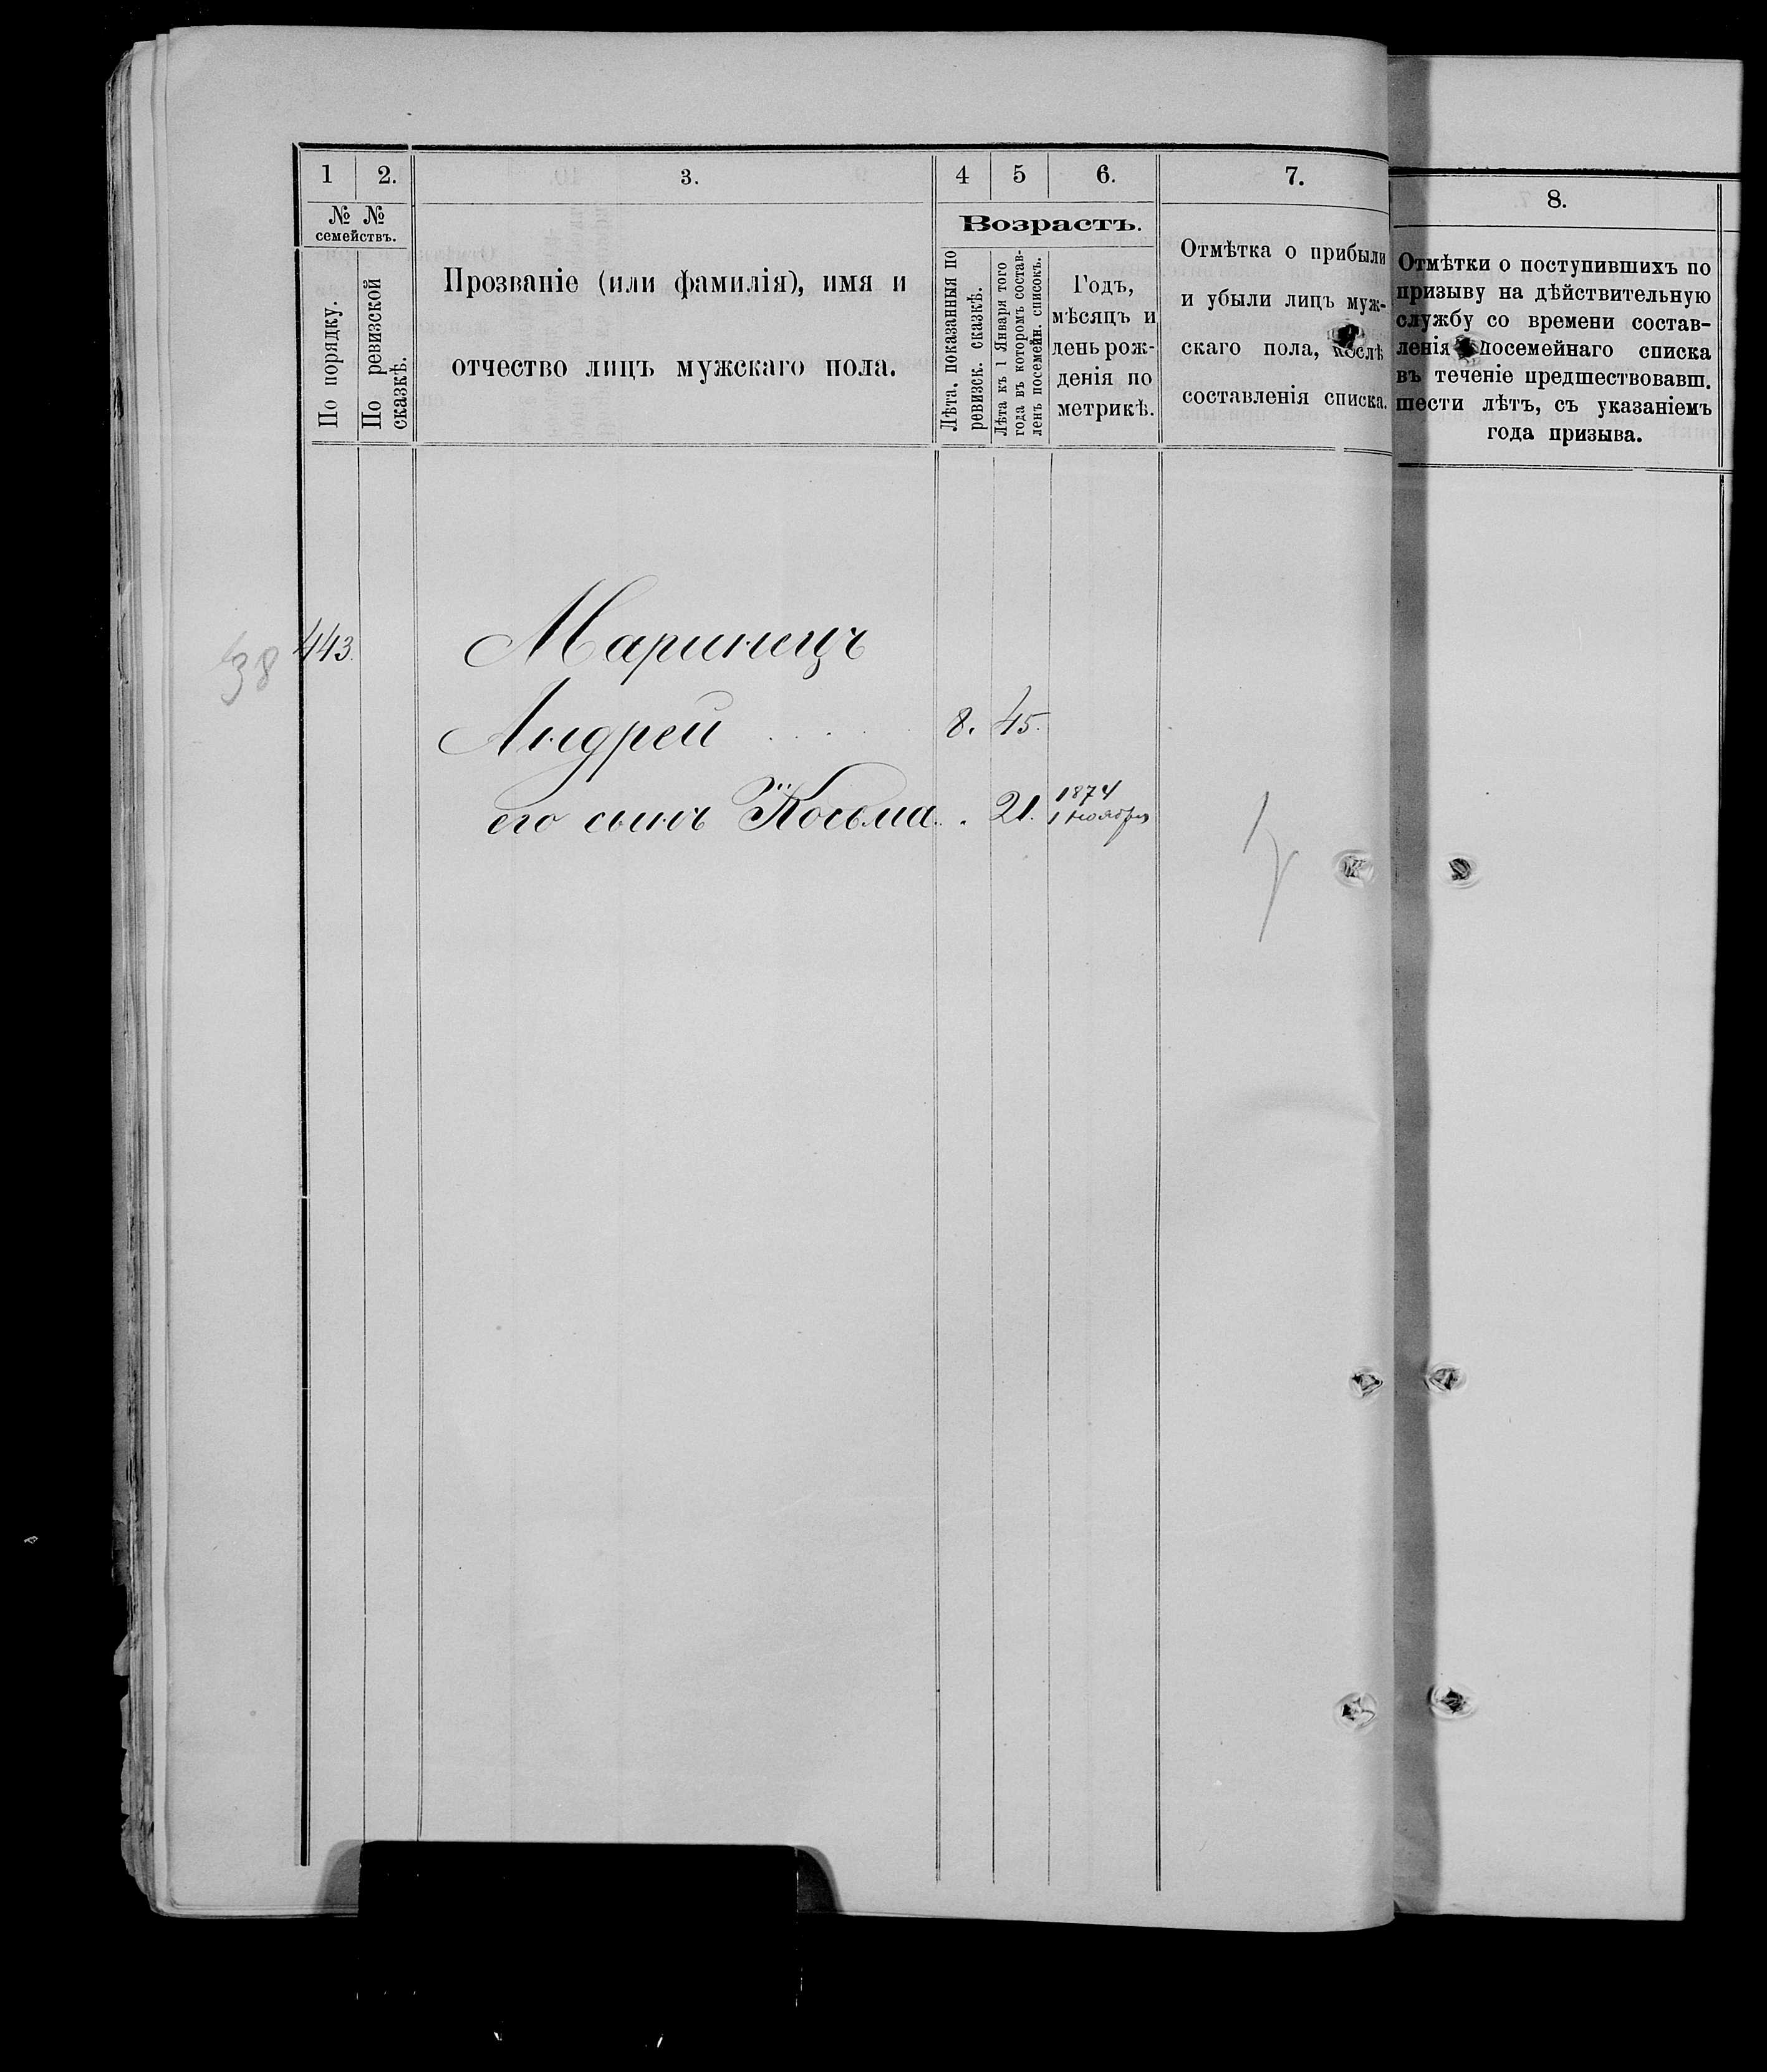 1 2. 3. 4 5 6. 7. 8.
№ № семействъ.
По порядку.
По ревизской сказкѣ.
Прозваніе (или фамилія), имя и
отчество лицъ мужскаго пола.
Возрастъ.
Лѣта, показанныя по
ревизск. сказкѣ.
Лѣта къ 1 Января того
года въ которомъ состав-
ленъ посемейн. списокъ.
Годъ,
мѣсяцъ и
день рож-
денія по
метрикѣ.
Отмѣтка о прибыли
и убыли лицъ муж-
скаго пола, послѣ
составленія списка.
Отмѣтки о поступившихъ по
призыву на дѣйствительную
службу со времени состав-
ленія посемейнаго списка
въ теченіе предшествовавш.
шести лѣтъ, съ указаніемъ
года призыва.
38 443. Маринецъ
Андрей 8. 45.
его сынъ Косьма. 21. 1874
1 ноября